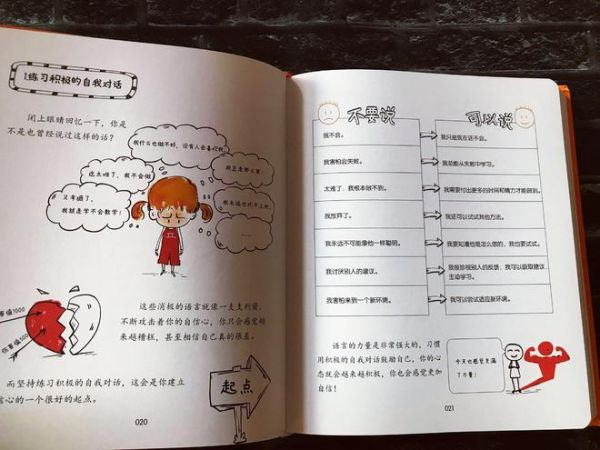 1.练习积极的自我对话
闭上眼睛回忆一下，你是
不是也曾经说过这样的话？
我什么也做不好，没有人会喜欢我。
这太难了，我不会做
又考砸了，
我就是学不会数学！
……
这些消极的语言就像一支支利箭，
不断攻击着你的自信心，你只会感觉越
来越糟糕，甚至相信自己真的很差。
伤害值1000
伤害值1005
而坚持练习积极的自我对话，这会是你建立
信心的一个很好的起点。
起点
020
不要说
可以说
我不会。
我只是现在还不会。
我害怕会失败。
我总能从失败中学习。
太难了，我根本做不到。
我需要付出更多的时间和精力才能做到。
我放弃了。
我还可以试试其他方法。
我永远不可能像他一样聪明。
我要知道他是怎么做的，我也要试试。
我讨厌别人的建议。
我很珍视别人的反馈，我可以吸取建议，
主动学习。
我害怕来到一个新环境。
我可以尝试适应新环境。
语言的力量是非常强大的，习惯
用积极的自我对话鼓励自己，你的心
态就会越来越积极，你也会感觉更加
自信！
今天也感觉充满
了力量！
021